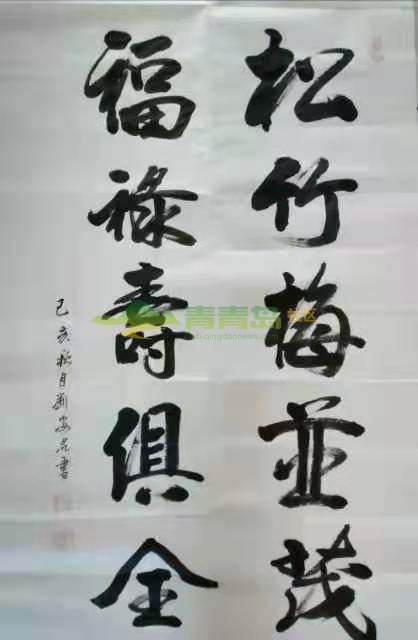 松竹梅並茂
福祿壽俱全
己亥秋月劉安宏書
青青岛社区
qingdaonews.com